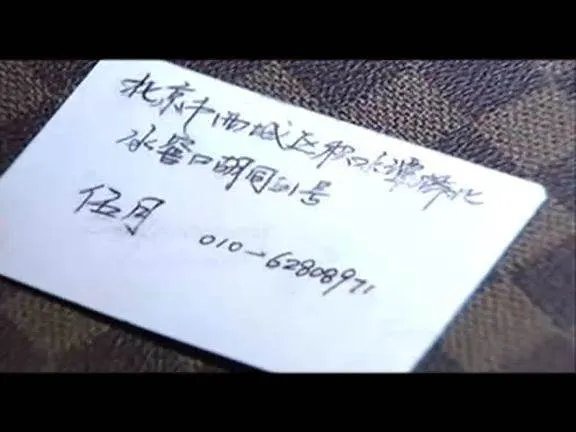 北京市西城区积水潭桥北
冰窖口胡同51号
伍月 010-62808971